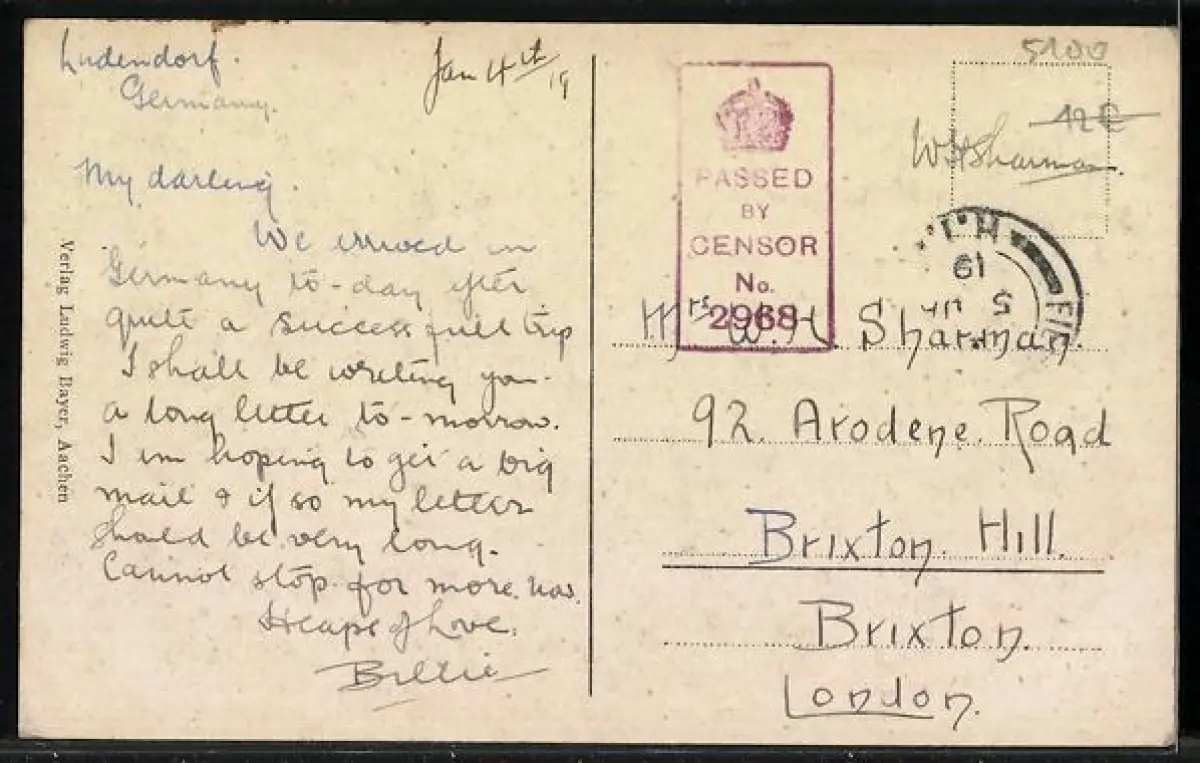 Ludendorf.
Germany.
Jan 4th 19
My darling.
We arrived in
Germany to-day after
quite a successfull trip
I shall be writing you
a long letter to-morrow.
I am hoping to get a big
mail & if so my letter
should be very long.
Cannot stop for more now.
Heaps of Love.
Billie
Verlag Ludwig Bayer, Aachen
PASSED
BY
CENSOR
No.
2968
5100
12€
WHSharman.
FIE
5 JA
19
Mrs W. H Sharman.
92. Arodene. Road
Brixton. Hill.
Brixton.
London.